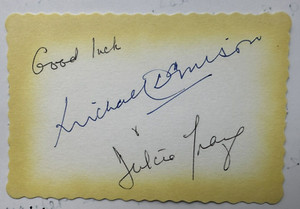 Good luck
Michael Denison
&
Dulcie Gray